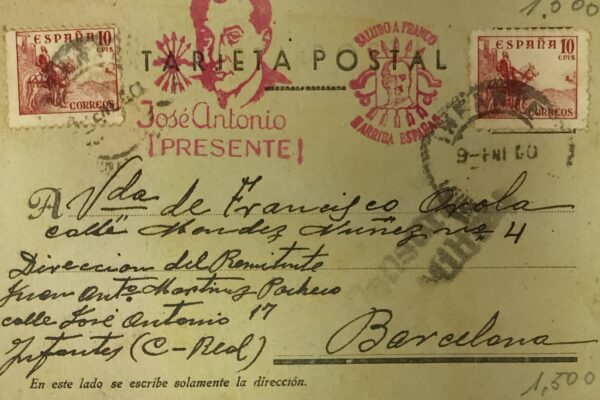 1.500
ESPAÑA
10
CTS
CORREOS
TARJETA POSTAL
SALUDO A FRANCO
ARRIBA ESPAÑA
ESPAÑA
10
CTS
CORREOS
José Antonio
¡PRESENTE!
A Vda de Francisco Orola
calle Mendez Nuñez nº 4
Direccion del Remitente
Juan Antº Martinez Pacheco
calle José Antonio 17
Infantes (C-Real)
Barcelona
En este lado se escribe solamente la dirección.
1,500